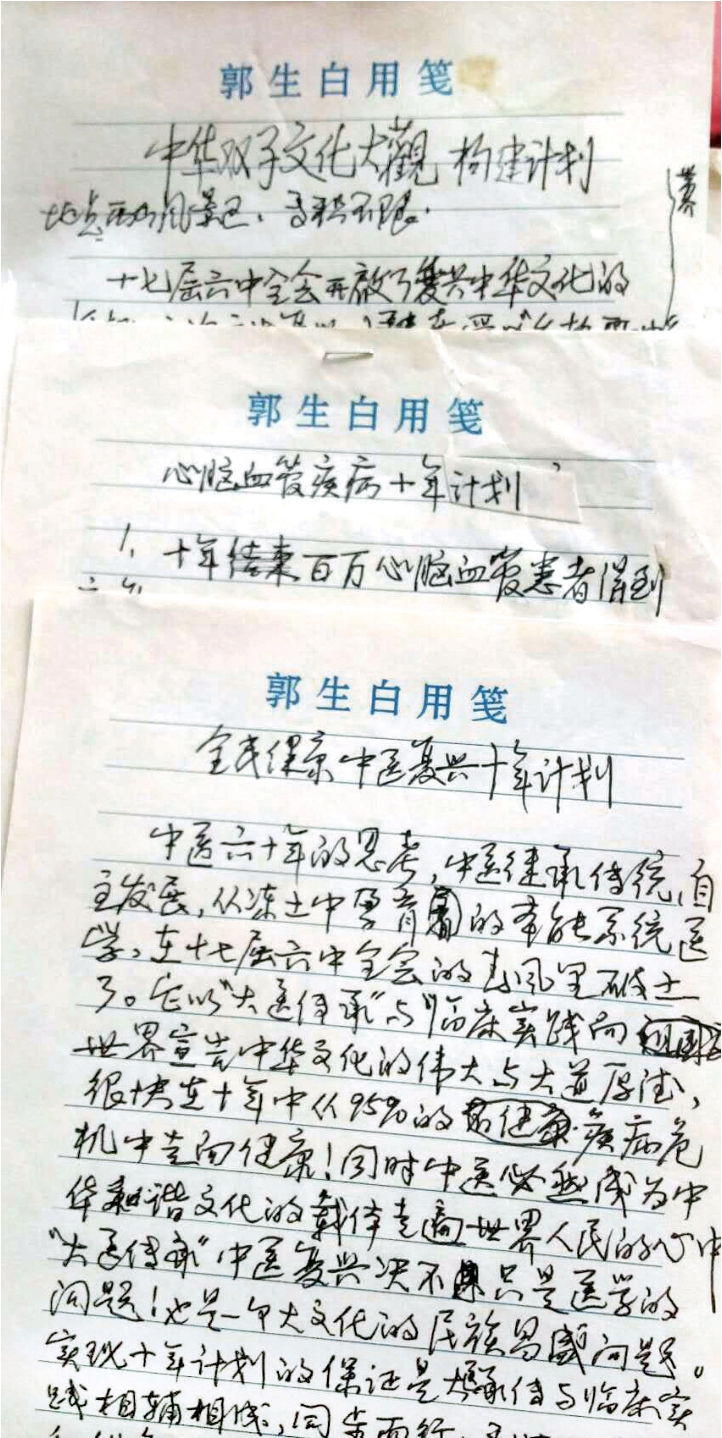 郭生白用笺
中华双子文化大觀 构建计划
地点西山风景区、面积不限.
十七届六中全会开啟了复兴中华文化的
郭生白用笺
心脑血管疾病十年计划
1. 十年结束百万心脑血管患者得到
郭生白用笺
全民健康中医复兴十年计划
中医六十年的思考,中医继承传统,自
主发展,从冻土中孕育的本能系统医
学,在十七届六中全会的春风里破土
了。它以"大医传承"与"临床实践向
世界宣告中华文化的伟大与大道厚德,
很快在十年中从95%的疾病危
机中走向健康!同时中医必然成为中
华和谐文化的载体走向世界人民的心中
"大医传承"中医复兴决不只是医学的
问题!也是一个大文化的民族昌盛问题。
实现十年计划的保证是传承与临床实
践相辅相成,同步而行,